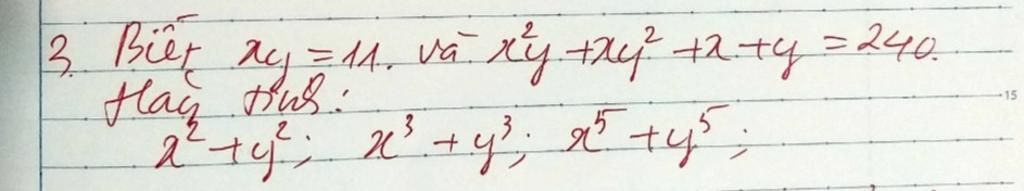 3. Biết xy = 11. và x²y + xy² + x + y = 240.
Hãy tính:
x² + y²; x³ + y³; x⁵ + y⁵;
15